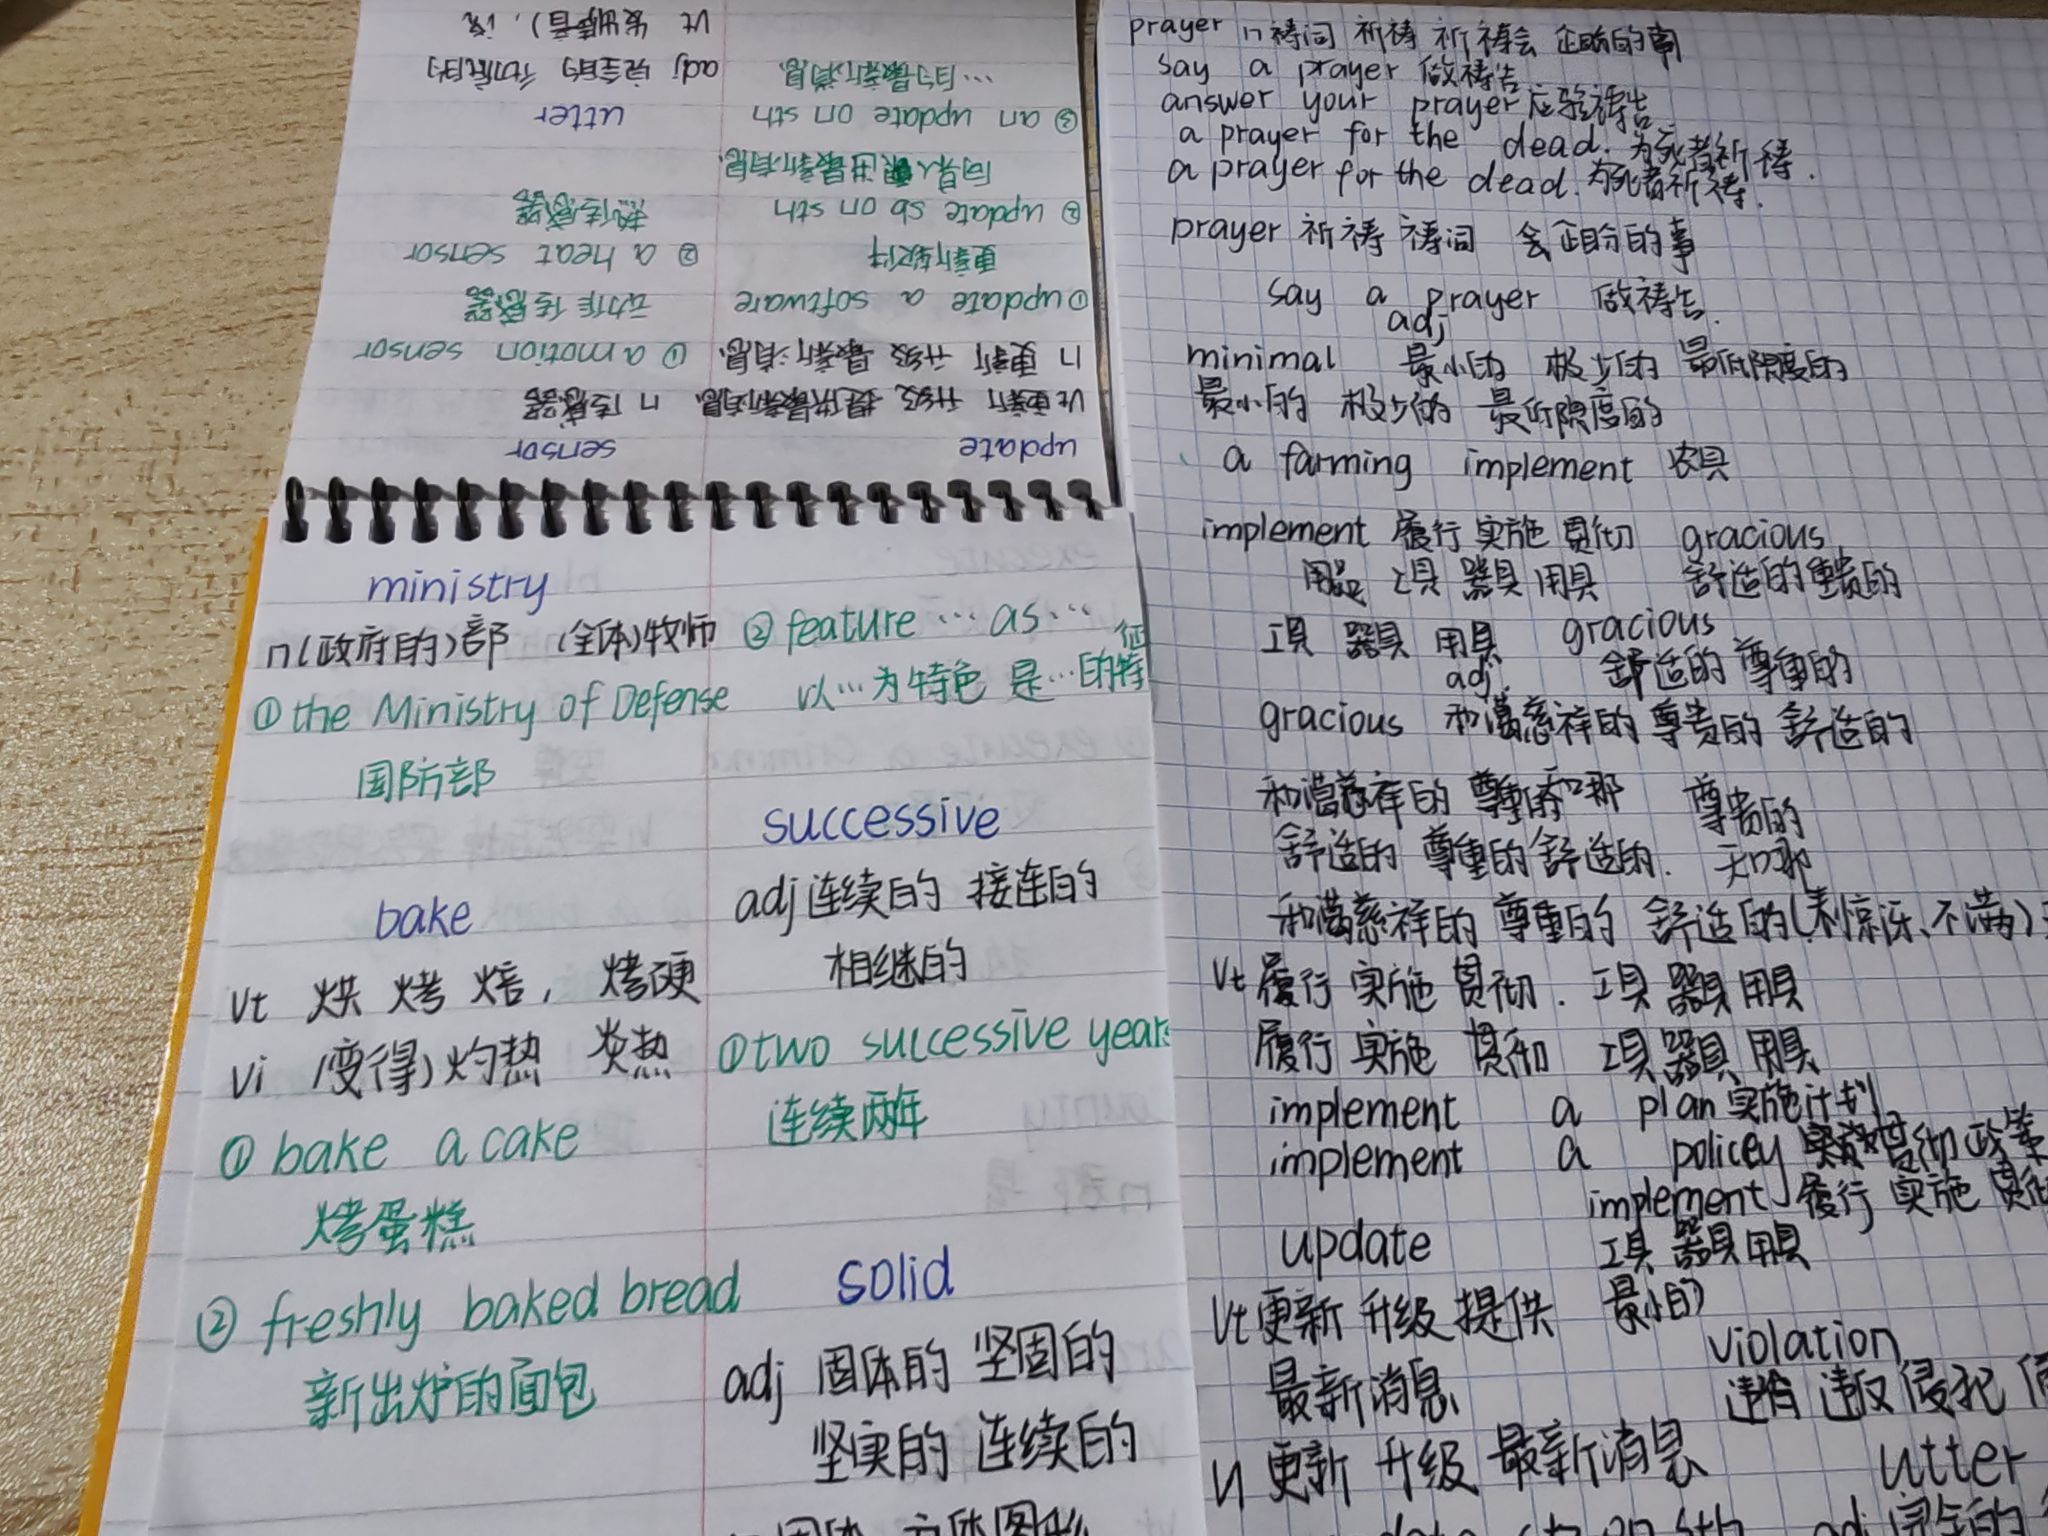 ministry
n(政府的)部 (全体)牧师
① the Ministry of Defense
国防部
bake
vt 烘 烤 焙, 烤硬
vi (变得)灼热 炎热
① bake a cake
烤蛋糕
② freshly baked bread
新出炉的面包
② feature … as …
以…为特色 是…的特征
successive
adj 连续的 接连的
相继的
① two successive years
连续两年
solid
adj 固体的 坚固的
坚实的 连续的
update
vt 更新 升级 提供最新消息.
n 更新 升级 最新消息.
① update a software
更新软件
② update sb on sth
向某人 最新消息.
③ an update on sth
…的最新消息.
sensor
n 传感器
① a motion sensor
动作传感器
② a heat sensor
热传感器
utter
adj 完全的 彻底的
vt
prayer n 祷词 祈祷 祈祷会 企盼的事
say a prayer 做祷告
answer your prayer 应验祷告
a prayer for the dead. 为死者祈祷.
a prayer for the dead. 为死者祈祷.
prayer 祈祷 祷词 会 企盼的事
say a prayer 做祷告.
adj
minimal 最小的 极少的 最低限度的
最小的 极少的 最低限度的
a farming implement 农具
implement 履行 实施 贯彻 gracious
用品 工具 器具 用具 舒适的 尊贵的
工具 器具 用具 gracious
adj. 舒适的 尊重的
gracious 和蔼慈祥的 尊贵的 舒适的
和蔼慈祥的 尊贵的
舒适的 尊重的 舒适的. 天哪
和蔼慈祥的 尊重的 舒适的(表惊讶、不满)
vt 履行 实施 贯彻. 工具 器具 用具
履行 实施 贯彻 工具 器具 用具
implement a plan 实施计划
implement a policey 贯彻政策
implement 履行 实施 贯彻
update 工具 器具 用具
vt 更新 升级 提供 最小的
最新消息 violation
违背 违反 侵犯
n 更新 升级 最新消息 utter